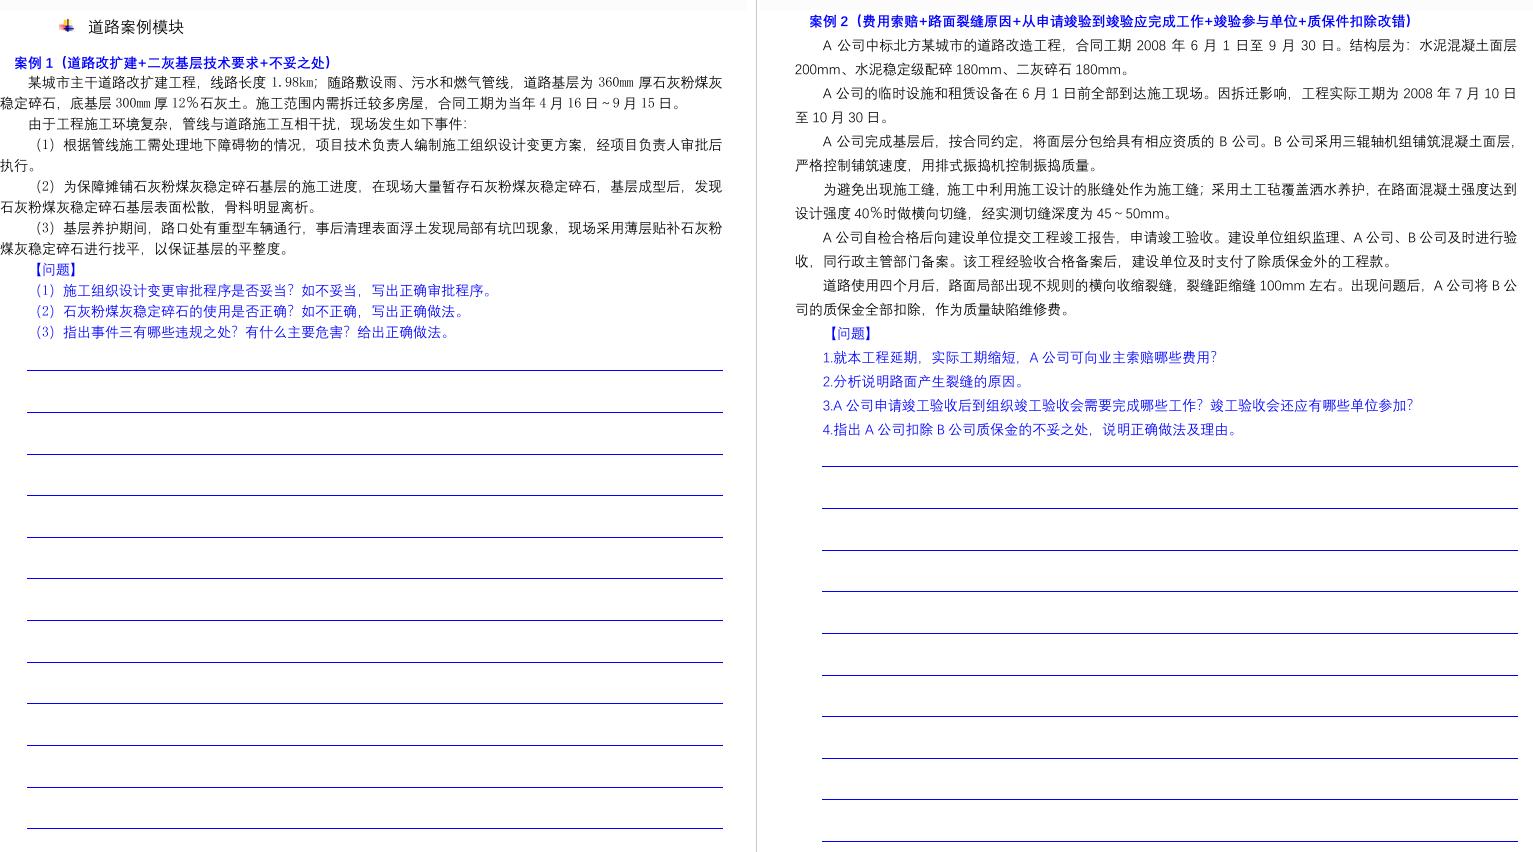 道路案例模块
案例 1（道路改扩建+二灰基层技术要求+不妥之处）
某城市主干道路改扩建工程，线路长度 1.98km；随路敷设雨、污水和燃气管线，道路基层为 360mm 厚石灰粉煤灰
稳定碎石，底基层 300mm 厚 12%石灰土。施工范围内需拆迁较多房屋，合同工期为当年 4 月 16 日～9 月 15 日。
由于工程施工环境复杂，管线与道路施工互相干扰，现场发生如下事件：
（1）根据管线施工需处理地下障碍物的情况，项目技术负责人编制施工组织设计变更方案，经项目负责人审批后
执行。
（2）为保障摊铺石灰粉煤灰稳定碎石基层的施工进度，在现场大量暂存石灰粉煤灰稳定碎石，基层成型后，发现
石灰粉煤灰稳定碎石基层表面松散，骨料明显离析。
（3）基层养护期间，路口处有重型车辆通行，事后清理表面浮土发现局部有坑凹现象，现场采用薄层贴补石灰粉
煤灰稳定碎石进行找平，以保证基层的平整度。
【问题】
（1）施工组织设计变更审批程序是否妥当？如不妥当，写出正确审批程序。
（2）石灰粉煤灰稳定碎石的使用是否正确？如不正确，写出正确做法。
（3）指出事件三有哪些违规之处？有什么主要危害？给出正确做法。
案例 2（费用索赔+路面裂缝原因+从申请竣验到竣验应完成工作+竣验参与单位+质保件扣除改错）
A 公司中标北方某城市的道路改造工程，合同工期 2008 年 6 月 1 日至 9 月 30 日。结构层为：水泥混凝土面层
200mm、水泥稳定级配碎 180mm、二灰碎石 180mm。
A 公司的临时设施和租赁设备在 6 月 1 日前全部到达施工现场。因拆迁影响，工程实际工期为 2008 年 7 月 10 日
至 10 月 30 日。
A 公司完成基层后，按合同约定，将面层分包给具有相应资质的 B 公司。B 公司采用三辊轴机组铺筑混凝土面层，
严格控制铺筑速度，用排式振捣机控制振捣质量。
为避免出现施工缝，施工中利用施工设计的胀缝处作为施工缝；采用土工毡覆盖洒水养护，在路面混凝土强度达到
设计强度 40%时做横向切缝，经实测切缝深度为 45～50mm。
A 公司自检合格后向建设单位提交工程竣工报告，申请竣工验收。建设单位组织监理、A 公司、B 公司及时进行验
收，同行政主管部门备案。该工程经验收合格备案后，建设单位及时支付了除质保金外的工程款。
道路使用四个月后，路面局部出现不规则的横向收缩裂缝，裂缝距缩缝 100mm 左右。出现问题后，A 公司将 B 公
司的质保金全部扣除，作为质量缺陷维修费。
【问题】
1.就本工程延期，实际工期缩短，A 公司可向业主索赔哪些费用？
2.分析说明路面产生裂缝的原因。
3.A 公司申请竣工验收后到组织竣工验收会需要完成哪些工作？竣工验收会还应有哪些单位参加？
4.指出 A 公司扣除 B 公司质保金的不妥之处，说明正确做法及理由。